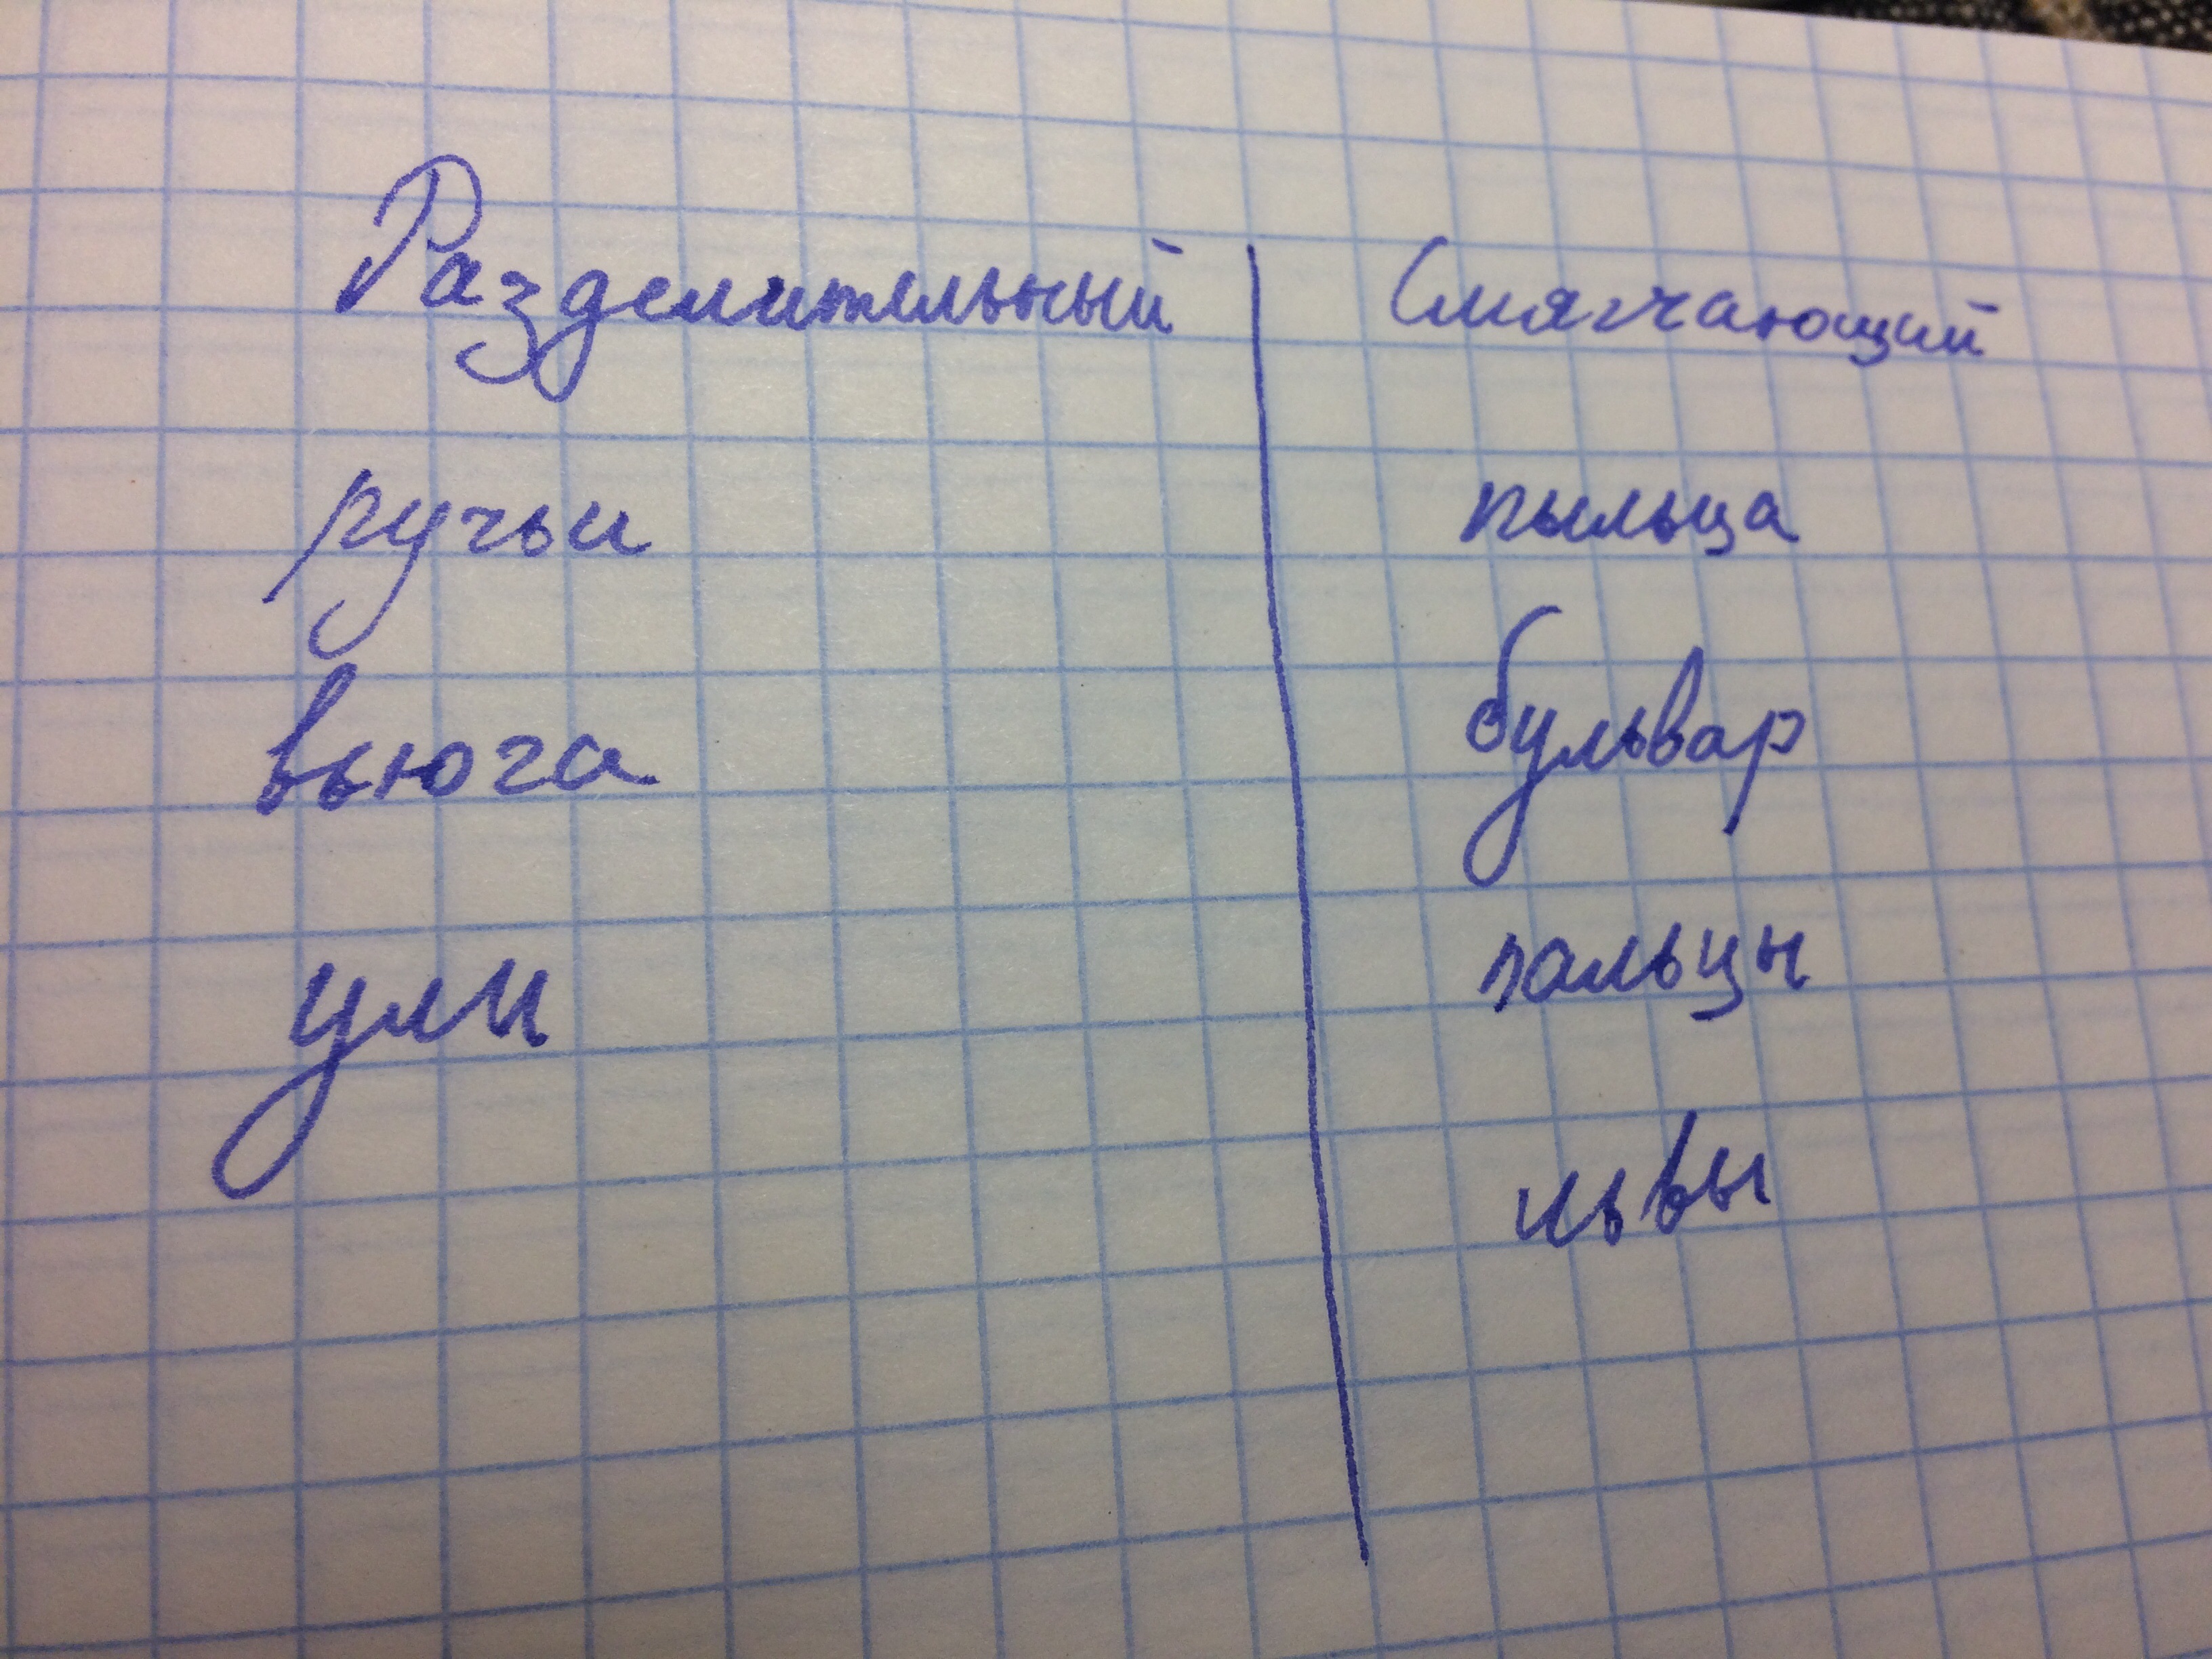 Разделительный Смягчающий
ручьи пыльца
вьюга бульвар
ули пальцы
львы